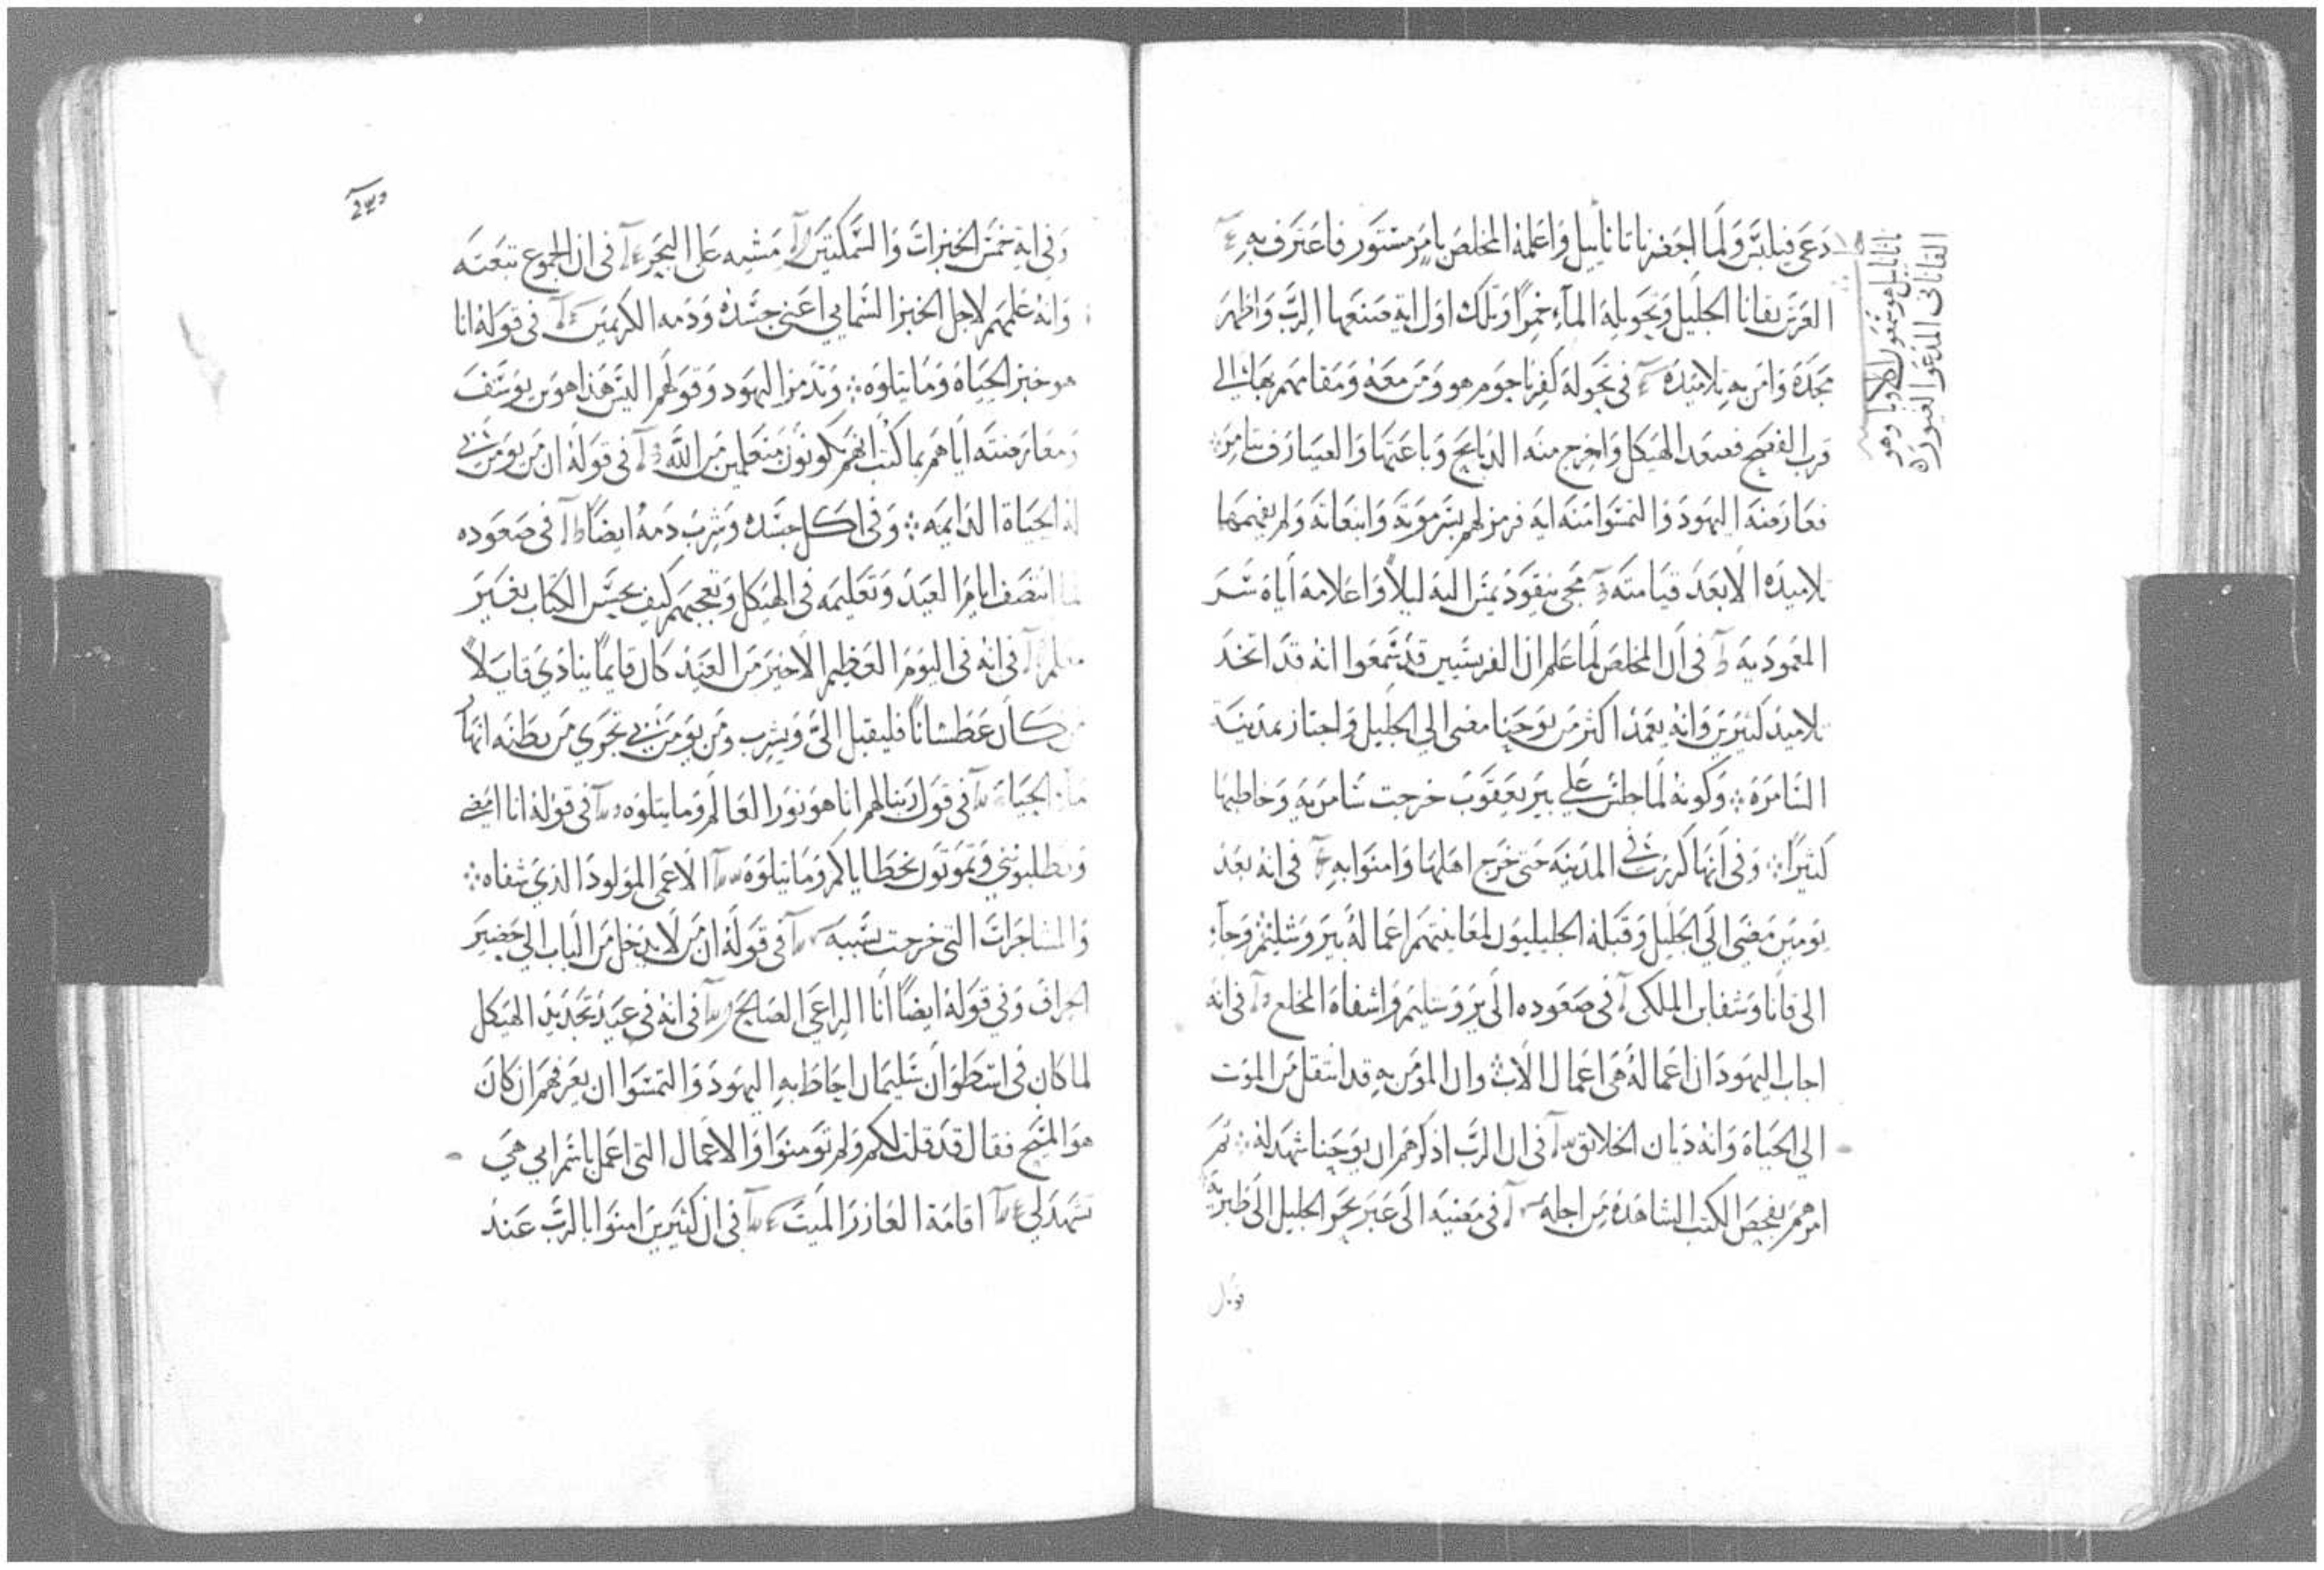 دعى فيلبس ولما احضر ناتاناييل واعلمه المخلص بامر مستور فاعترف به
العرس بقانا الجليل وتحويله الماء خمرا وتلك اول اية صنعها الرب واظهر
مجده وامن به تلاميذه في نحوله كفرناحوم هو ومن معه ومقامهم بها الى
قرب الفصح فصعد الهيكل واخرج منه الذبايح وباعتها والصيارف تنامر
فعارضه اليهود والتمسوا منه اية فرمز لهم بسر موته وانبعاثه ولم يفهمها
تلاميذه الا بعد قيامته مجي نيقوديمس اليه ليلا واعلامه اياه سر
المعمودية في ان المخلص لما علم ان الفريسيين قد سمعوا انه قد اتخذ
تلاميذ كثيرين وانه يعمد اكثر من يوحنا مضى الى الجليل واجتاز بمدينة
السامرة وكونه لما جلس على بير يعقوب خرجت سامرية وخاطبها
كثيرا وفي انها كرزت في المدينة حتى خرج اهلها وامنوا به في انه بعد
يومين مضى الى الجليل وقبله الجليليون لمعاينتهم اعماله بيروشليم وجاء
الى قانا وشفا ابن الملكي في صعوده الى يروشليم واشفاه المخلع في انه
اجاب اليهود ان اعماله هي اعمال الاب وان المومن به قد انتقل من الموت
الى الحياة وانه ديان الخلايق في ان الرب اذكرهم ان يوحنا شهد له ثم
امرهم بفحص الكتب الشاهدة من اجله في مضيه الى عبر بحر الجليل الى طبرية
ناتاناييل هو سمعون وهو
القاناني المدعو الغيور
وفي اية خمس الخبزات والسمكتين مشيه على البحر في ان الجموع تبعته
وانه علمهم لاجل الخبز السمايي اعني جسده ودمه الكريمين في قوله انا
هو خبز الحياة وما يتلوه وتذمر اليهود وقولهم اليس هذا هو بن يوسف
ومعارضته اياهم بما كتب انهم يكونون متعلمين من الله في قوله ان من يومن بي
له الحياة الدايمه وفي اكل جسده وشرب دمه ايضا في صعوده
لما انتصف ايام العيد وتعليمه في الهيكل وتعجبهم كيف يحسن الكتاب بغير
معلم في انه في اليوم العظيم الاخير من العيد كان قايما ينادي قايلا
من كان عطشانا فليقبل الي ويشرب ومن يومن بي تجري من بطنه انهار
ماء الحياة في قول ربنا لهم انا هو نور العالم وما يتلوه في قوله انا امضي
وتطلبونني وتموتون بخطاياكم وما يتلوه الاعمى المولود الذي شفاه
والمشاجرات التي خرجت بسببه في قوله ان من لا يدخل من الباب الى حضير
الخراف وفي قوله ايضا انا الراعي الصالح في انه في عيد تجديد الهيكل
لما كان في اسطوان سليمان احاط به اليهود والتمسوا ان يعرفهم ان كان
هو المسيح فقال قد قلت لكم ولم تومنوا والاعمال التي اعمل باسم ابي هي
تشهد لي اقامة العازر الميت في ان كثيرين امنوا بالرب عند